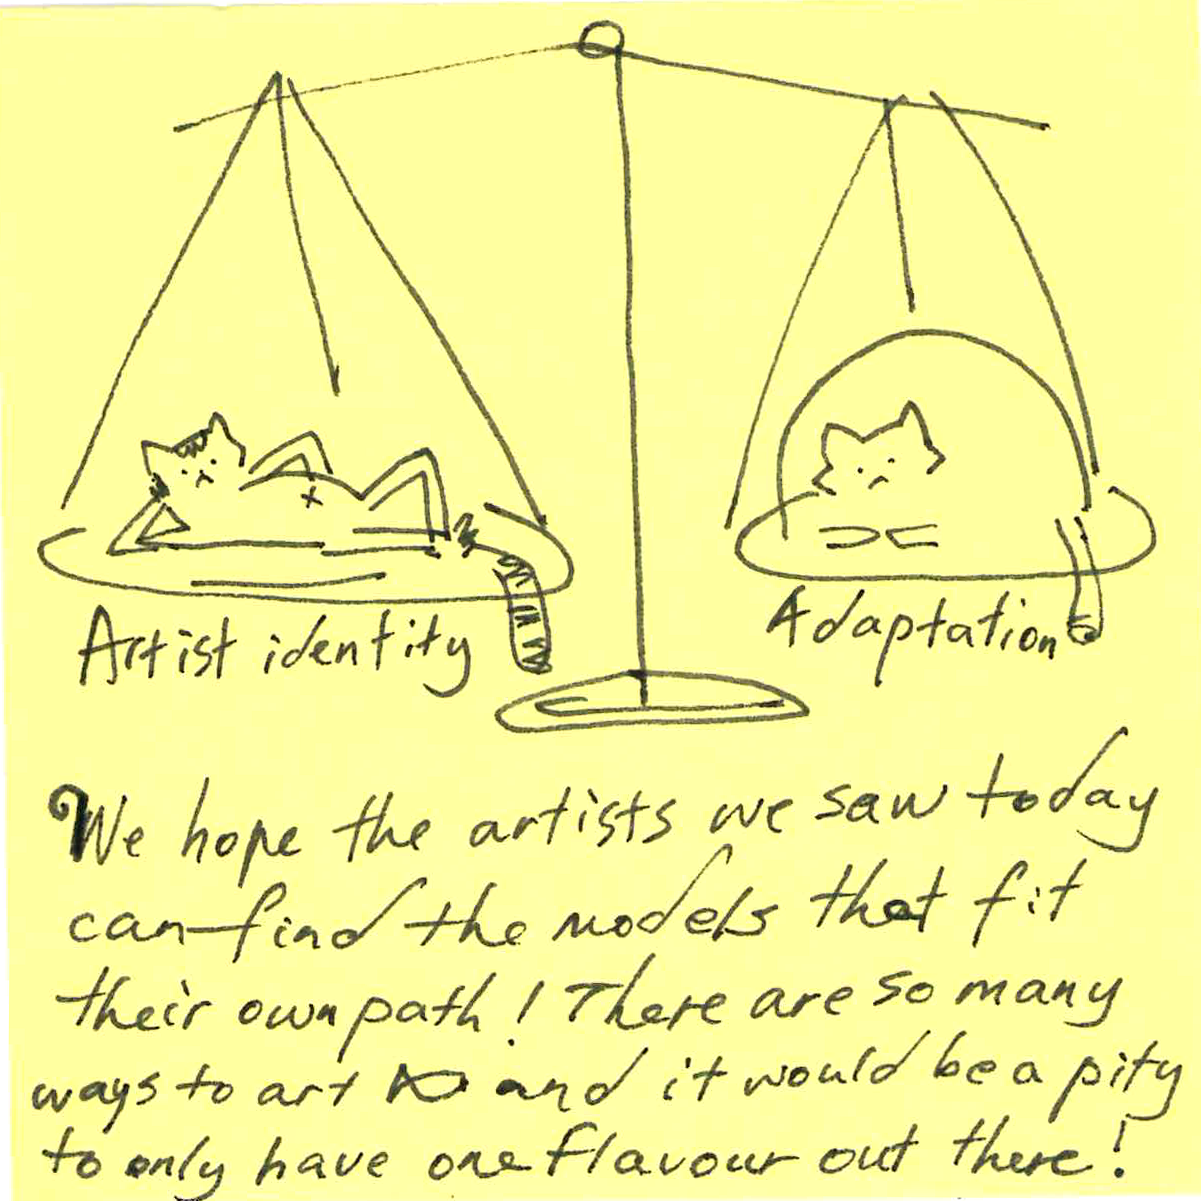 Artist identity
Adaptation
We hope the artists we saw today
can find the models that fit
their own path! There are so many
ways to art and it would be a pity
to only have one flavour out there!